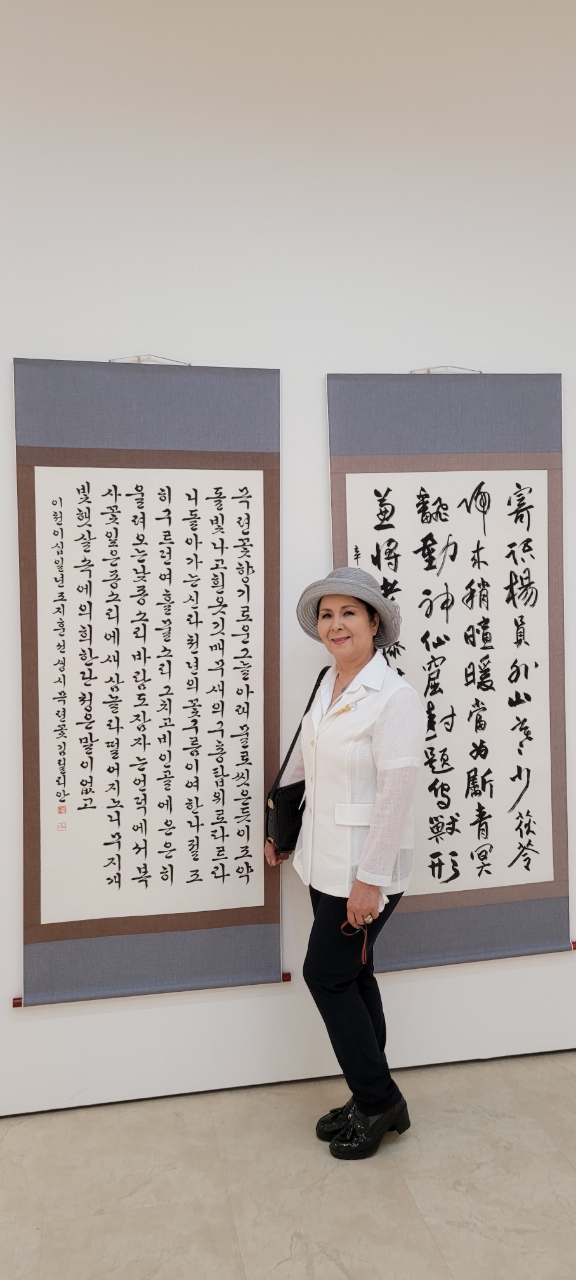 寄語楊員外山寒少茯苓
歸來稍暄暖當為斸青冥
翻動神仙窟封題鳥獸形
兼將老藤
辛
목련꽃향기로운그늘아래물로씻은듯이조약
돌빛나고흰옷깃매무새의구층탑위로파르라
니돌아가는신라천년의꽃구름이여한나절조
히구르던여흘물소리그치고비인골에은은히
울려오는낮종소리바람도잠자는언덕에서복
사꽃잎은종소리에새삼놀라떨어지노니무지개
빛햇살속에의희한단청은말이없고
이천이십일년조지훈선생시목련꽃김